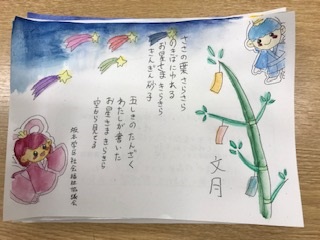 ささの葉 さらさら
のきばに ゆれる
お星さま きらきら
きんぎん 砂子
五しきの たんざく
わたしが 書いた
お星さま きらきら
空から 見てる
社会福祉協議会
文月